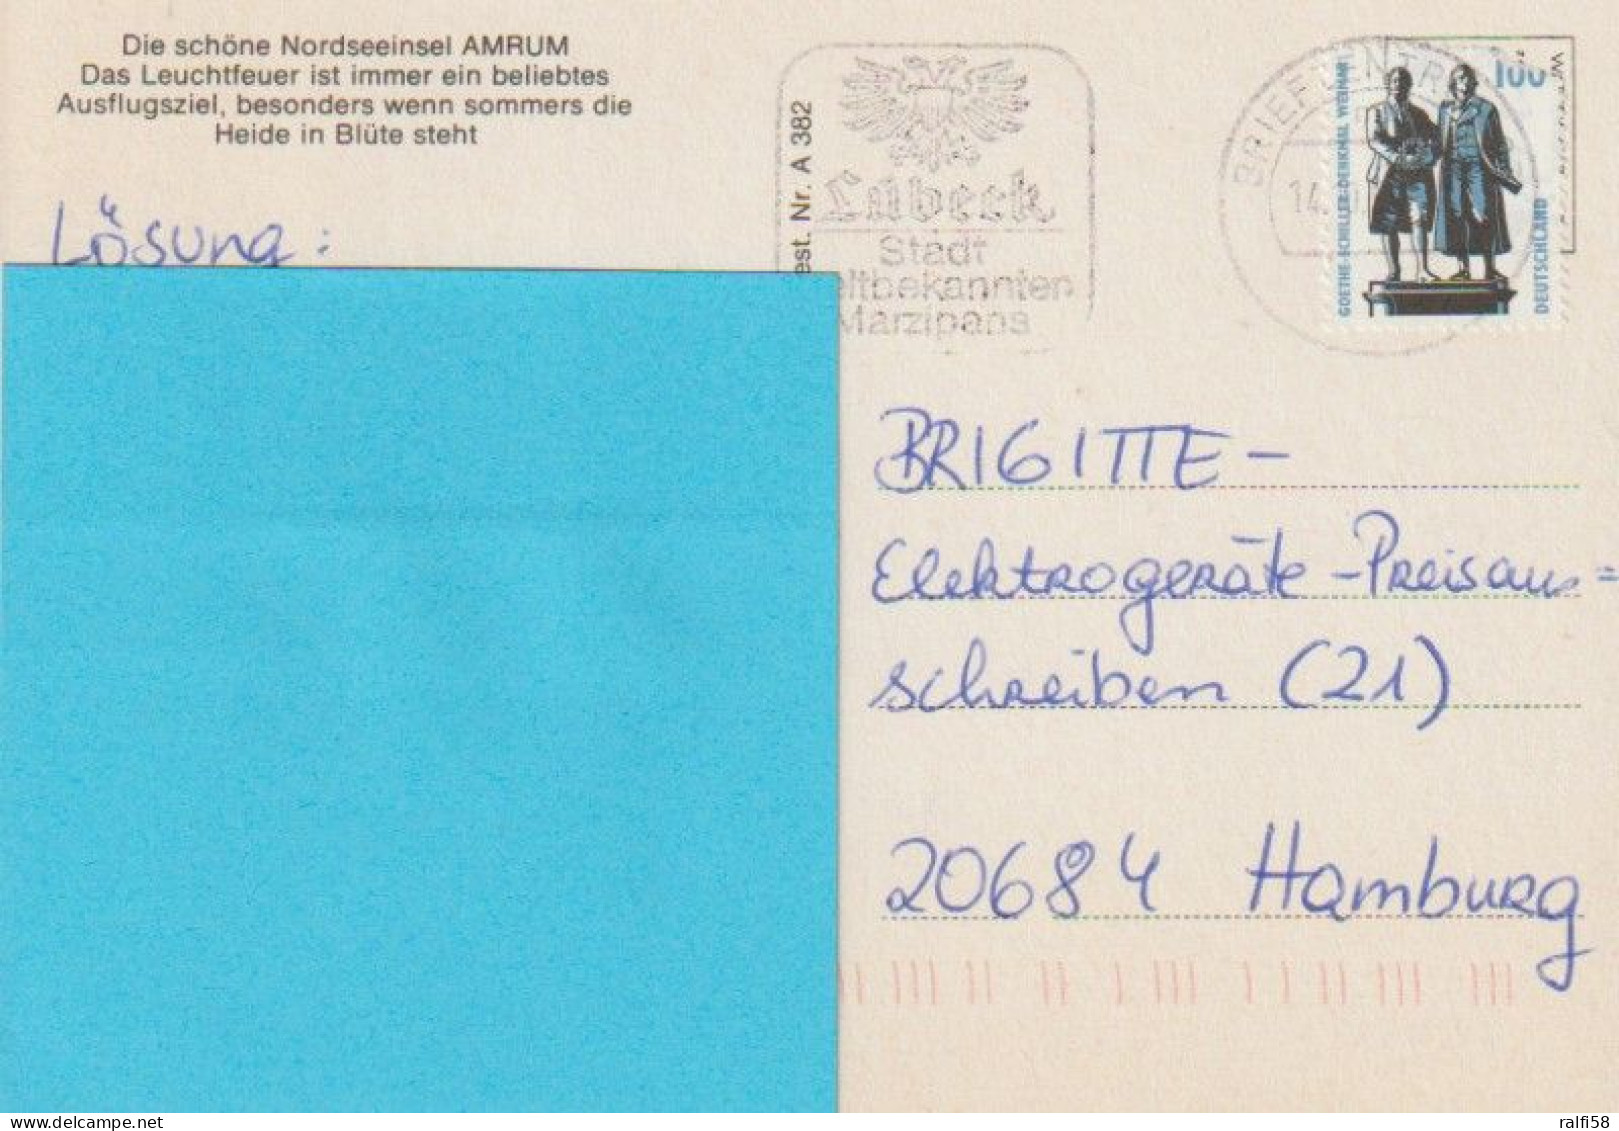 Die schöne Nordseeinsel AMRUM
Das Leuchtfeuer ist immer ein beliebtes
Ausflugsziel, besonders wenn sommers die
Heide in Blüte steht
Lösung:
est. Nr. A 382
Lübeck
Stadt
ltbekannten
Marzipans
BRIEFZENTR
14.
100
GOETHE-SCHILLER-DENKMAL WEIMAR
DEUTSCHLAND
BRIGITTE-
Elektrogeräte-Preisaus=
schreiben (21)
20684 Hamburg
ralfi58